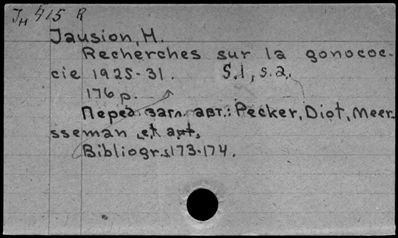 Jн 415 R
Jausion, H.
Recherches sur la gonococ-
cie 1925-31. S.l, s.a.
176 p.
Перед. загл. авт.: Pecker, Diot, Meer-
sseman et apt.
Bibliogr.s173-174.